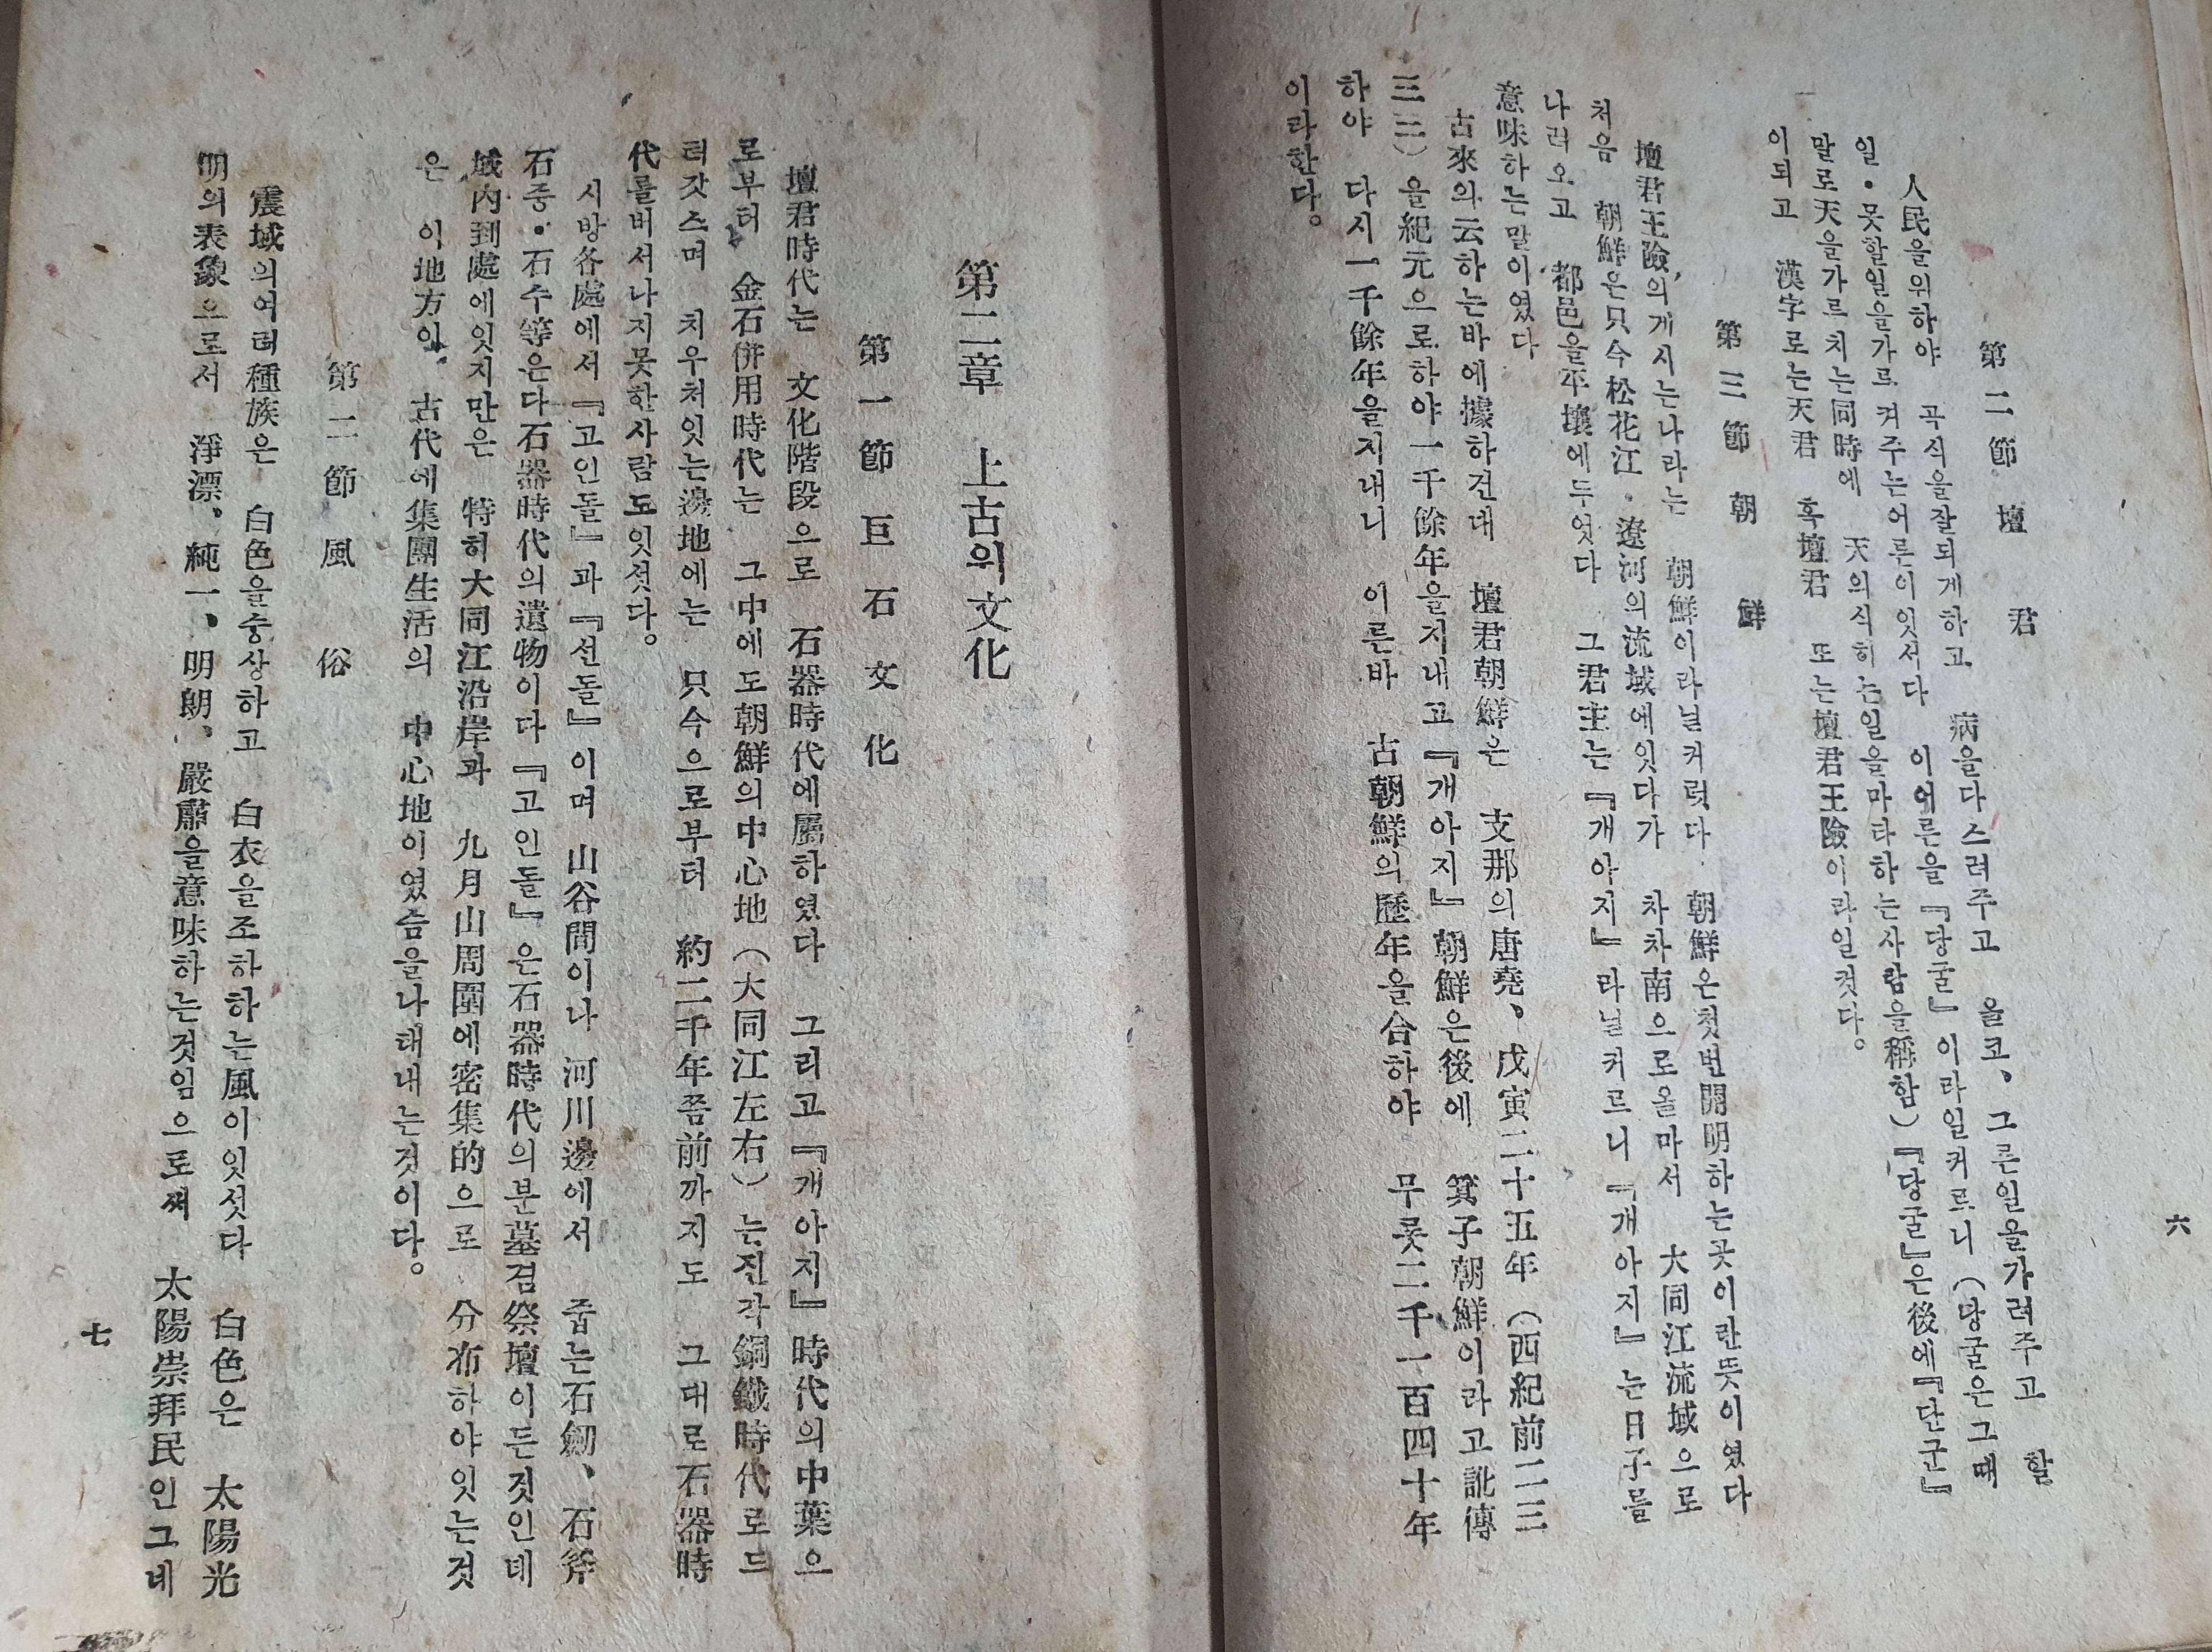 六
第二節 壇君
人民을위하야 곡식을잘되게하고 病을다스려주고 올코、그른일을가려주고 할
일·못할일을가르켜주는어른이잇서다 이어른을『당굴』이라일커르니(당굴은그때
말로天을가르치는同時에 天의식히는일을마타하는사람을稱함)『당굴』은後에『단군』
이되고 漢字로는天君 혹壇君 또는壇君王險이라일컷다。
第三節 朝鮮
壇君王險의게시는나라는 朝鮮이라닐커럿다 朝鮮은첫번開明하는곳이란뜻이였다
처음 朝鮮은只今松花江·遼河의流域에잇다가 차차南으로올마서 大同江流域으로
나려오고 都邑을平壤에두엇다 그君主는『개아지』라닐커르니『개아지』는日子를
意味하는말이였다
古來의云하는바에據하건대 壇君朝鮮은 支那의唐堯、戊寅二十五年(西紀前二三
三三)을紀元으로하야一千餘年을지내고『개아지』朝鮮은後에 箕子朝鮮이라고訛傳
하야 다시一千餘年을지내니 이른바 古朝鮮의歷年을合하야 무롯二千一百四十年
이라한다。
第二章 上古의文化
第一節 巨石文化
壇君時代는 文化階段으로 石器時代에屬하였다 그리고『개아지』時代의中葉으
로부터 金石併用時代는 그中에도朝鮮의中心地(大同江左右)는진각銅鐵時代로드
러갓스며 치우처잇는邊地에는 只今으로부터 約二千年쯤前까지도 그대로石器時
代를버서나지못한사람도잇섯다。
시방各處에서『고인돌』과『선돌』이며 山谷間이나 河川邊에서 줍는石劒、石斧
石중·石수等은다石器時代의遺物이다『고인돌』은石器時代의분墓겸祭壇이든것인데
域內到處에잇지만은 特히大同江沿岸과 九月山周圍에密集的으로 分布하야잇는것
은 이地方이 古代에集團生活의 中心地이였슴을나태내는것이다。
第二節 風俗
震域의여러種族은 白色을숭상하고 白衣을조하하는風이잇섯다 白色은 太陽光
明의表象으로서 淨漂、純一、明朗、嚴肅을意味하는것임으로써 太陽崇拜民인그네
七